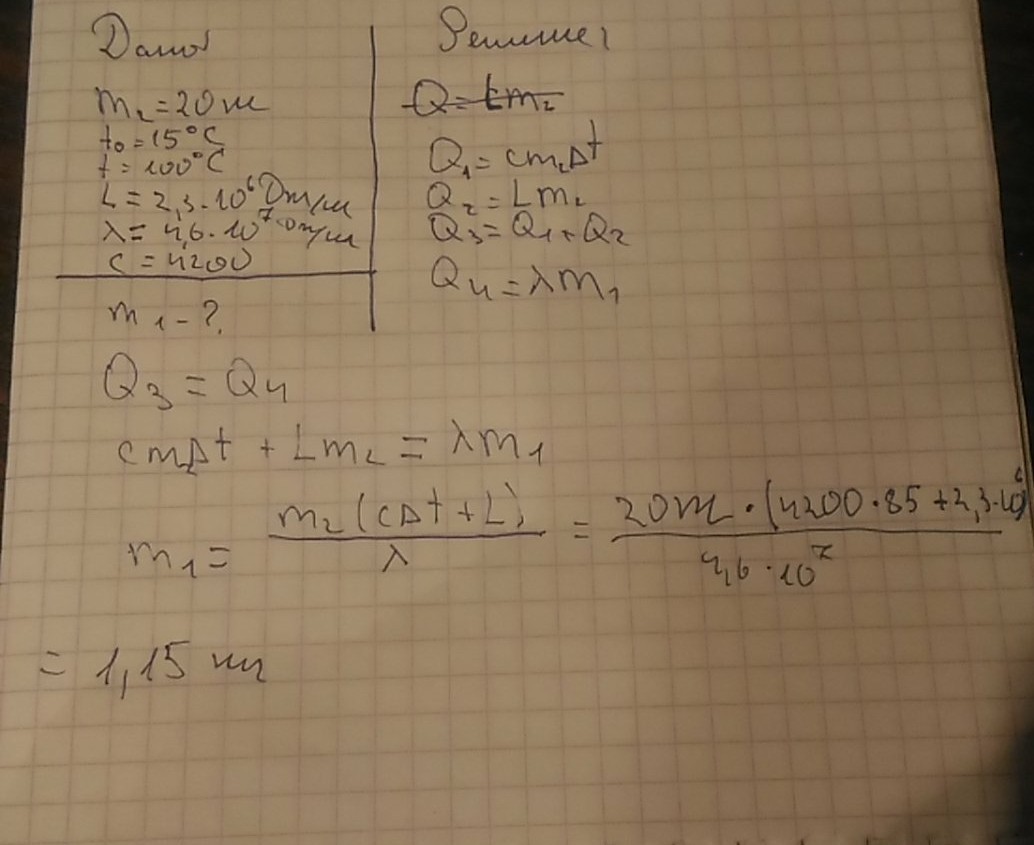 Дано:
m₂ = 20 кг
t₀ = 15°C
t = 100°C
L = 2,3·10⁶ Дж/кг
λ = 4,6·10⁷ Дж/кг
c = 4200
m₁ - ?
Решение:
Q = Lm₂
Q₁ = cm₂Δt
Q₂ = Lm₂
Q₃ = Q₁ + Q₂
Q₄ = λm₁
Q₃ = Q₄
cm₂Δt + Lm₂ = λm₁
m₁ = m₂(cΔt + L) / λ = 20кг·(4200·85 + 2,3·10⁶) / 4,6·10⁷
= 1,15 кг